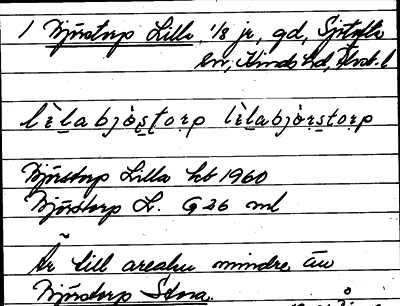 1 Bjõrstorp Lilla, 1/8 jr, gd, Sjötofta
sn, Kinds hd, Älvsb. l
lèlabjòrstorp lèlabjòrstorp
Bjõrstorp Lilla kb 1960
Bjõrstorp L. G 26 ml
Är till arealen mindre än
Bjõrstorp Stora.